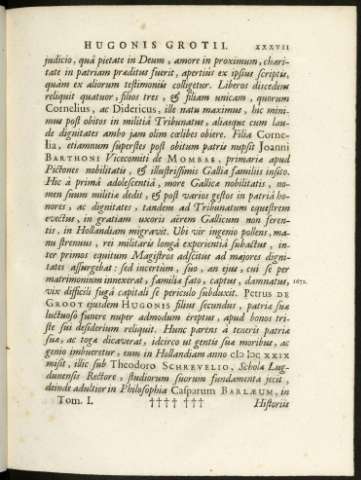 HUGONIS GROTII. XXXVII
judicio, quâ pietate in Deum, amore in proximum, chari-
tate in patriam præditus fuerit, apertius ex ipsius scriptis,
quàm ex aliorum testimoniis colligetur. Liberos discedens
reliquit quatuor, filios tres, & filiam unicam, quorum
Cornelius, ac Didericus, ille natu maximus, hic mini-
mus post obitos in militiâ Tribunatus, aliasque cum lau-
de dignitates ambo jam olim cœlibes obiere. Filia Corne-
lia, etiamnum superstes post obitum patris nupsit Joanni
BARTHONI Vicecomiti de MOMBAS, primariæ apud
Pictones nobilitatis, & illustrissimis Galliæ familiis insito.
Hic à primâ adolescentiâ, more Gallicæ nobilitatis, no-
men suum militiæ dedit, & post varios gestos in patriâ ho-
nores, ac dignitates, tandem ad Tribunatum equestrem
evectus, in gratiam uxoris aërem Gallicum non feren-
tis, in Hollandiam migravit. Ubi vir ingenio pollens, ma-
nu strenuus, rei militaris longâ experientiâ subactus, in-
ter primos equitum Magistros adscitus ad majores digni-
tates assurgebat: sed incertum, suo, an ejus, cui se per
matrimonium innexerat, familiæ fato, captus, damnatus, 1672.
vix difficili fugâ capitali se periculo subduxit. Petrus DE
GROOT ejusdem HUGONIS filius secundus, patriæ suæ
luctuoso funere nuper admodum ereptus, apud bonos tri-
ste sui desiderium reliquit. Hunc parens à teneris patriæ
suæ, ac togæ dicaverat, idcirco ut gentis suæ moribus, ac
genio imbueretur, eum in Hollandiam anno cIɔ Iɔc XXIX
misit, illic sub Theodoro SCHREVELIO, Scholæ Lug-
dunensis Rectore, studiorum suorum fundamenta jecit,
deinde adultior in Philosophia Casparum BARLÆUM, in
Tom. I. †††† ††† Historiis